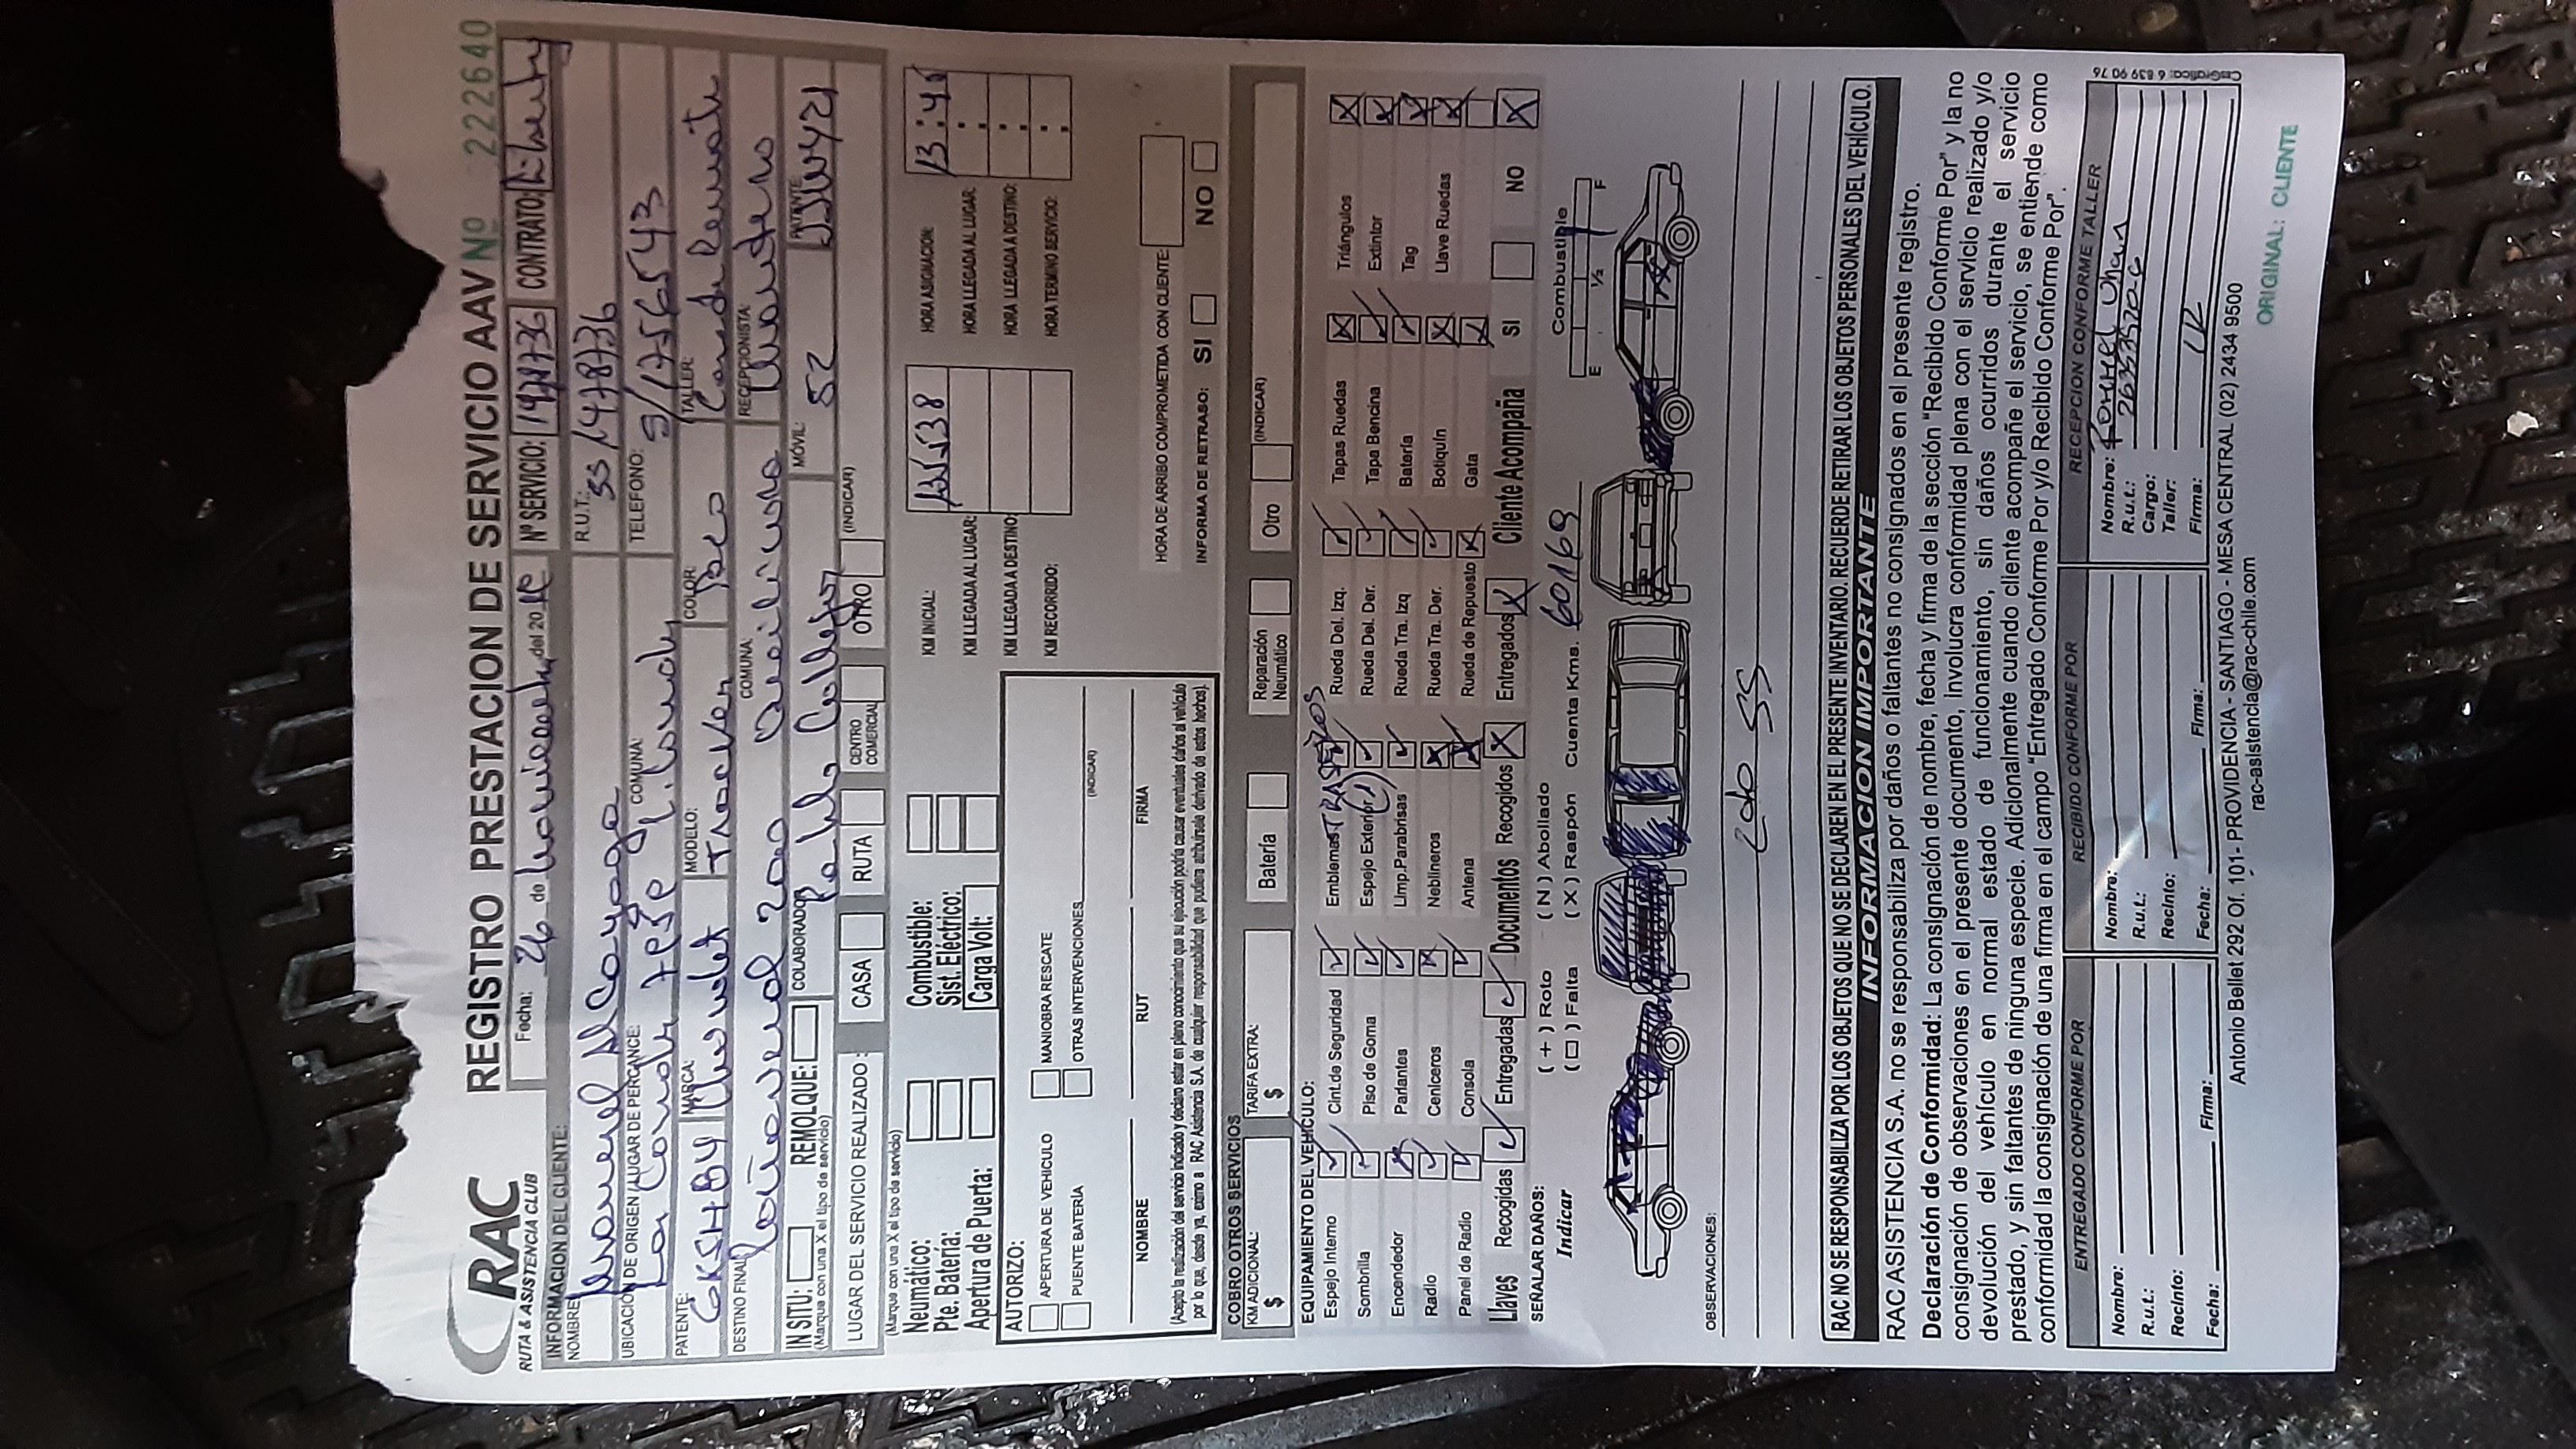 RAC
RUTA & ASISTENCIA CLUB
REGISTRO PRESTACION DE SERVICIO AAV Nº 222640
Fecha: 26 de del 20
Nº SERVICIO: 1478736 CONTRATO: Liberty
INFORMACION DEL CLIENTE:
NOMBRE: Manuel R.U.T.: 55/1478736
UBICACIÓN DE ORIGEN / LUGAR DE PERCANCE: Las Condes COMUNA: L. Condes TELEFONO: 9/1756543
PATENTE: GKSH84 MARCA: Chevrolet MODELO: Tracker COLOR: TALLER:
DESTINO FINAL: 2000 COMUNA: RECEPCIONISTA:
IN SITU: REMOLQUE: COLABORADOR: Pablo MÓVIL: 52 PATENTE: JJWY21
(Marque con una X el tipo de servicio)
LUGAR DEL SERVICIO REALIZADO: CASA RUTA CENTRO COMERCIAL OTRO (INDICAR)
(Marque con una X el tipo de servicio)
Neumático: Combustible:
Pte. Batería: Sist. Eléctrico:
Apertura de Puerta: Carga Volt:
KM INICIAL: HORA ASIGNACION:
KM LLEGADA AL LUGAR: HORA LLEGADA AL LUGAR:
KM LLEGADA A DESTINO: HORA LLEGADA A DESTINO:
KM RECORRIDO: HORA TERMINO SERVICIO:
AUTORIZO:
APERTURA DE VEHICULO MANIOBRA RESCATE
PUENTE BATERÍA OTRAS INTERVENCIONES (INDICAR)
NOMBRE RUT FIRMA
(Acepto la realización del servicio indicado y declaro estar en pleno conocimiento que su ejecución podría causar eventuales daños al vehículo
por lo que, desde ya, eximo a RAC Asistencia S.A. de cualquier responsabilidad que pudiera atribuírsele derivado de estos hechos).
HORA DE ARRIBO COMPROMETIDA CON CLIENTE:
INFORMA DE RETRASO: SI NO
COBRO OTROS SERVICIOS
KM ADICIONAL: $ TARIFA EXTRA: $ Batería Reparación Neumático Otro (INDICAR)
EQUIPAMIENTO DEL VEHÍCULO:
Espejo Interno Cint.de Seguridad Emblemas TRASEROS Rueda Del. Izq. Tapas Ruedas Triángulos
Sombrilla Piso de Goma Espejo Exterior (1) Rueda Del. Der. Tapa Bencina Extintor
Encendedor Parlantes Limp.Parabrisas Rueda Tra. Izq Batería Tag
Radio Ceniceros Neblineros Rueda Tra. Der. Botiquín Llave Ruedas
Panel de Radio Consola Antena Rueda de Repuesto Gata
Llaves Recogidas Entregadas Documentos Recogidos Entregados Cliente Acompaña SI NO
SEÑALAR DAÑOS: ( + ) Roto ( N ) Abollado
Indicar ( □ ) Falta ( X ) Raspón Cuenta Kms. 60169 Combustible
E ½ F
OBSERVACIONES:
RAC NO SE RESPONSABILIZA POR LOS OBJETOS QUE NO SE DECLAREN EN EL PRESENTE INVENTARIO. RECUERDE RETIRAR LOS OBJETOS PERSONALES DEL VEHÍCULO.
INFORMACION IMPORTANTE
RAC ASISTENCIA S.A. no se responsabiliza por daños o faltantes no consignados en el presente registro.
Declaración de Conformidad: La consignación de nombre, fecha y firma de la sección "Recibido Conforme Por" y la no
consignación de observaciones en el presente documento, involucra conformidad plena con el servicio realizado y/o
devolución del vehículo en normal estado de funcionamiento, sin daños ocurridos durante el servicio
prestado, y sin faltantes de ninguna especie. Adicionalmente cuando cliente acompañe el servicio, se entiende como
conformidad la consignación de una firma en el campo "Entregado Conforme Por y/o Recibido Conforme Por".
ENTREGADO CONFORME POR
Nombre:
R.u.t.:
Recinto:
Fecha: Firma:
RECIBIDO CONFORME POR
Nombre:
R.u.t.:
Recinto:
Fecha: Firma:
RECEPCION CONFORME TALLER
Nombre:
R.u.t.:
Cargo:
Taller:
Firma:
CasGrafica: 6 839 90 76
Antonio Bellet 292 Of. 101- PROVIDENCIA - SANTIAGO - MESA CENTRAL (02) 2434 9500
rac-asistencia@rac-chile.com
ORIGINAL: CLIENTE